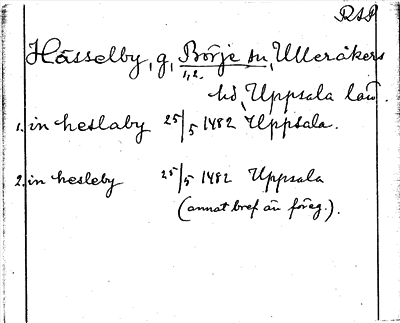 RAP
Hässelby, g, Börje sn, Ulleråkers
1,2.
hd, Uppsala län.
1. in heslaby 25/5 1482 Uppsala.
2. in hesleby 25/5 1482 Uppsala
(annat bref än föreg.).